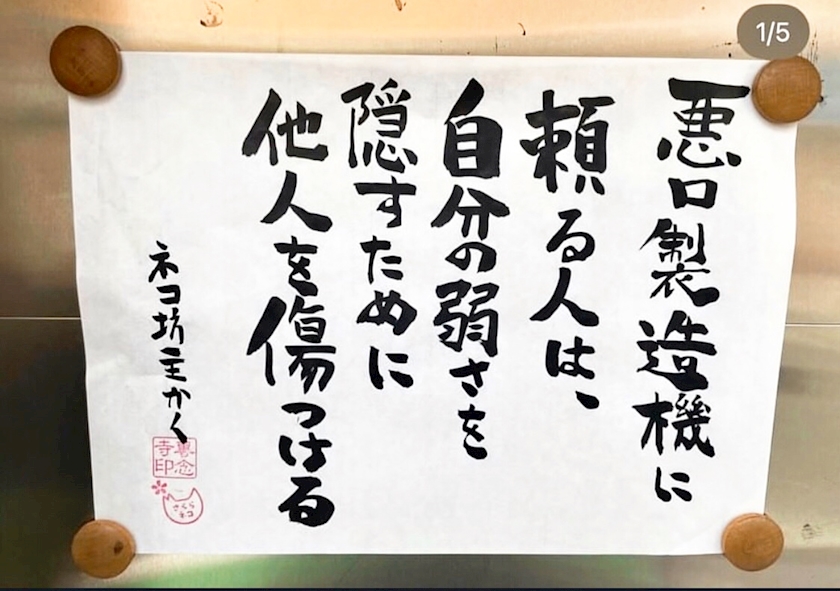 悪口製造機に
頼る人は、
自分の弱さを
隠すために
他人を傷つける
ネコ坊主かく
専念
寺印
さくら
ネコ
1/5